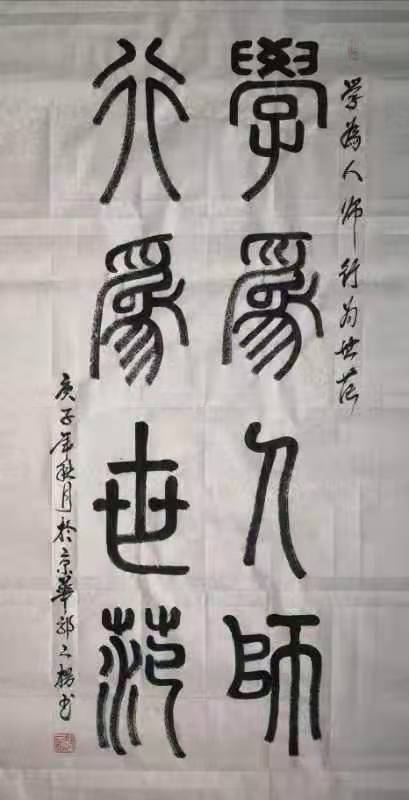 学为人师行为世范
學爲人師
行爲世范
庚子年秋月於京華郭之楊书